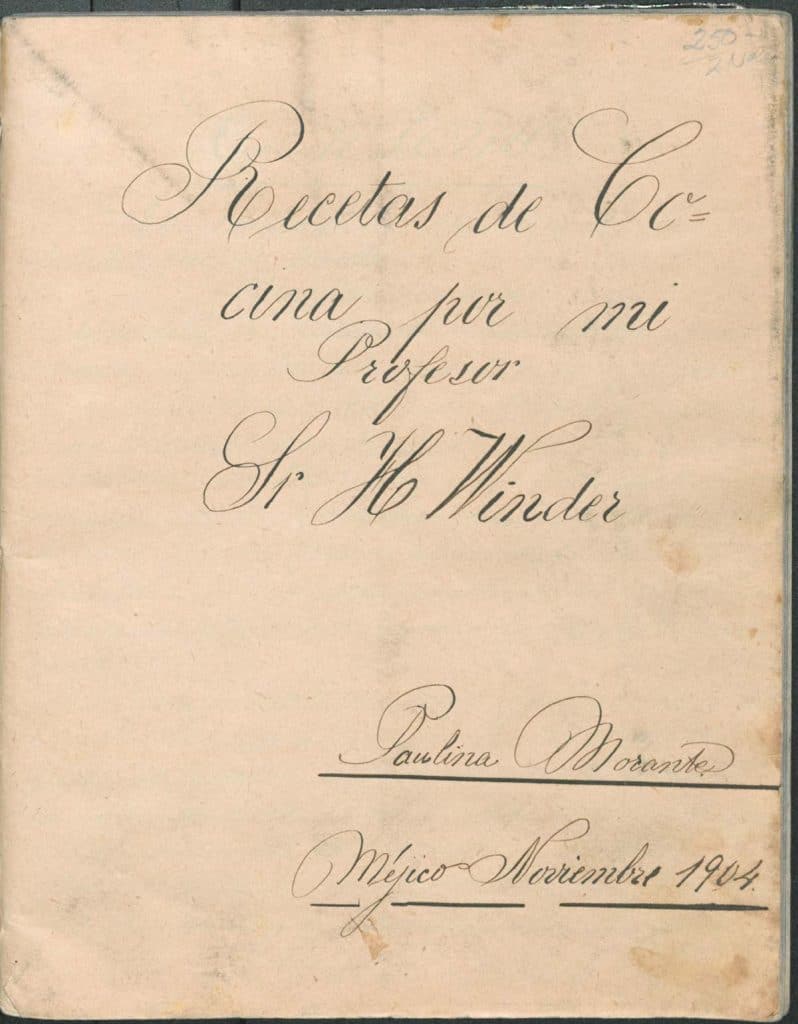 Recetas de Co=
cina por mi
Profesor
Sr H Winder
Paulina Morante
Méjico Noviembre 1904.